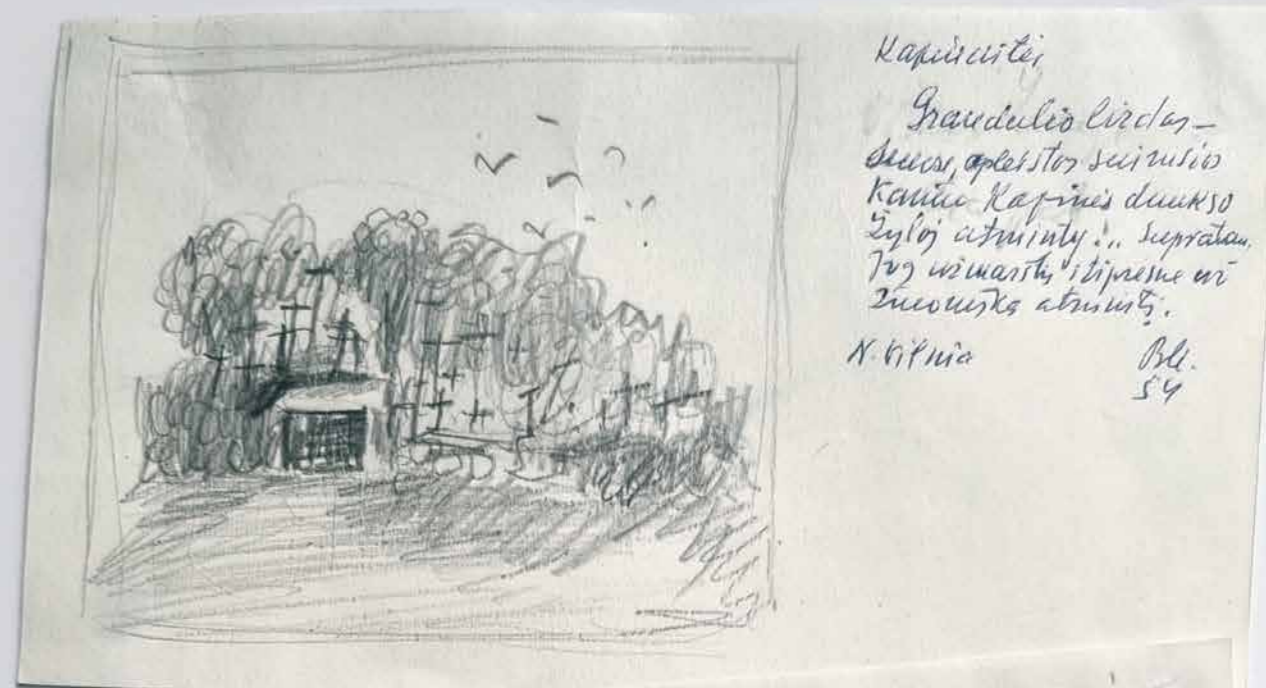 Kapinaitės
Graudulio lizdas –
senose, apleistos suirusios
Kaimo Kapinės dunkso
žyloj atminty... Supratau,
jog užmarštis stipresnė už
žmonišką atmintį.
N. Vilnia Blė.
54